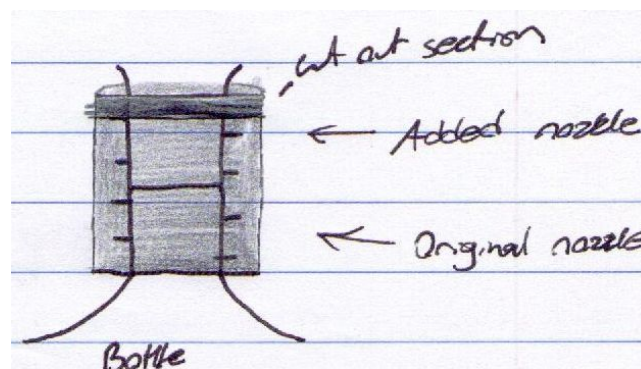 cut out section
Added nozzle
Original nozzle
Bottle